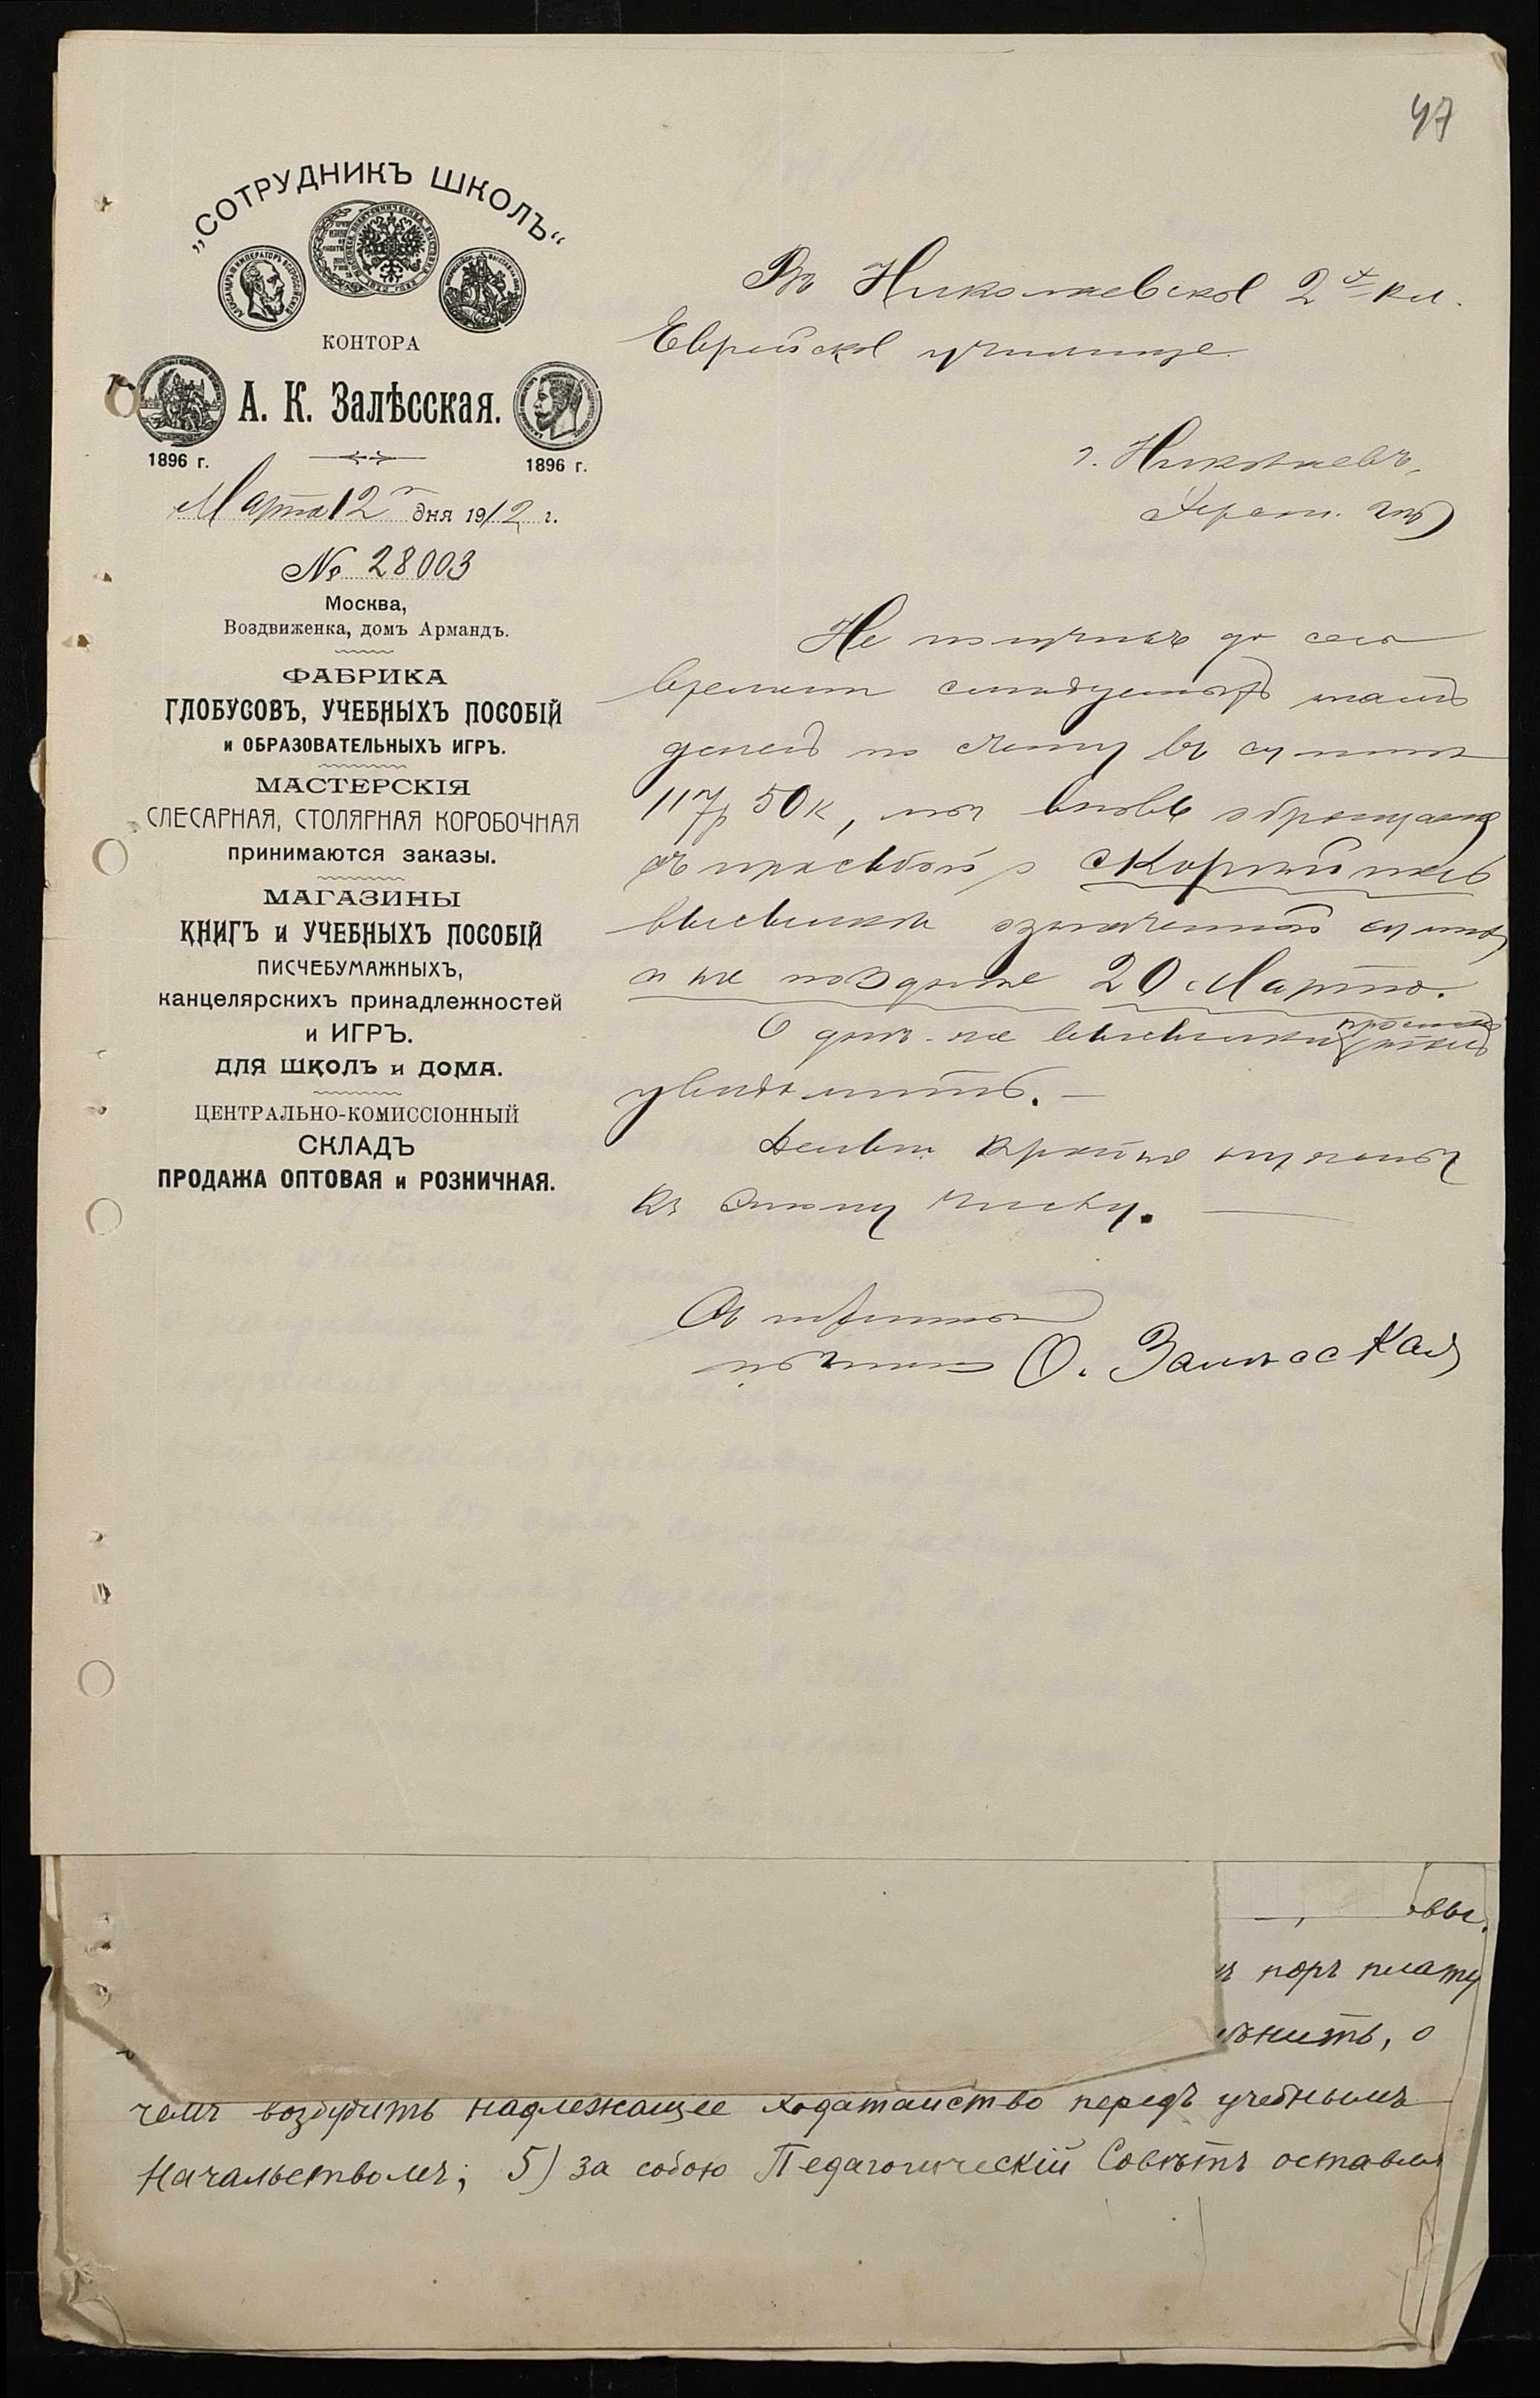 47
„СОТРУДНИКЪ ШКОЛЪ“
КОНТОРА
А. К. Залѣсская.
1896 г. 1896 г.
Марта 12 дня 1912 г.
№ 28003
Москва,
Воздвиженка, домъ Армандъ.
ФАБРИКА
ГЛОБУСОВЪ, УЧЕБНЫХЪ ПОСОБІЙ
и ОБРАЗОВАТЕЛЬНЫХЪ ИГРЪ.
МАСТЕРСКІЯ
СЛЕСАРНАЯ, СТОЛЯРНАЯ КОРОБОЧНАЯ
принимаются заказы.
МАГАЗИНЫ
КНИГЪ и УЧЕБНЫХЪ ПОСОБІЙ
ПИСЧЕБУМАЖНЫХЪ,
канцелярскихъ принадлежностей
и ИГРЪ.
ДЛЯ ШКОЛЪ и ДОМА.
ЦЕНТРАЛЬНО-КОМИССІОННЫЙ
СКЛАДЪ
ПРОДАЖА ОПТОВАЯ и РОЗНИЧНАЯ.
Въ Николаевское 2х кл.
Еврейское училище.
г. Николаевъ,
Херсон. губ
Не получивъ до сего
времени слѣдуемыхъ намъ
денегъ по счету въ суммѣ
117р 50к, мы вновь обращаемся
съ просьбой о скорѣйшей
высылкѣ означенной суммы
и не позднѣе 20 Марта.
О днѣ-же высылки просимъ насъ
увѣдомить.
Деньги крайне нужны
къ этому числу.
Съ почтеніемъ О. Залѣсская
вы.
поръ плату
чемъ возбудить надлежащее ходатайство передъ учебнымъ
Начальствомъ; 5) за собою Педагогическій Совѣтъ оставля